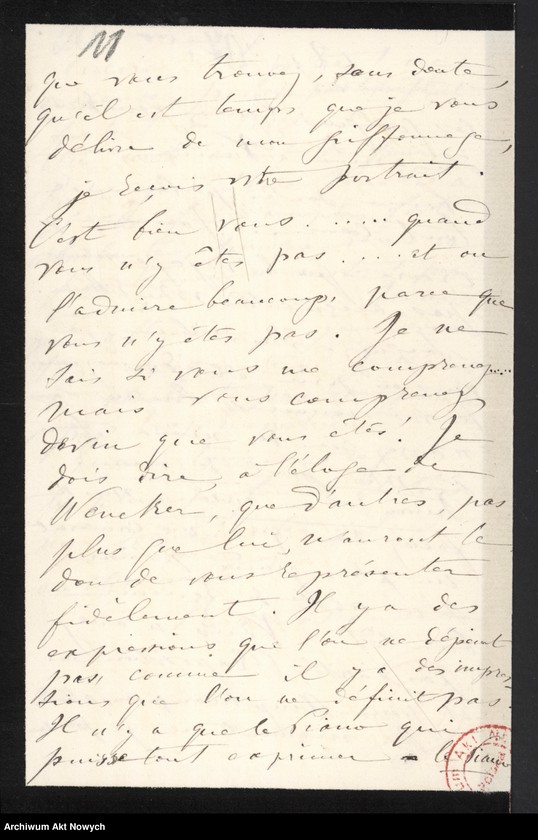 11
que vous trouvez, sans doute,
qu'il est temps que je vous
délivre de mon griffonnage,
je reçois votre portrait.
C'est bien vous ...... quand
vous n'y êtes pas .... et on
l'admire beaucoup, parce que
vous n'y êtes pas. Je ne
sais si vous me comprenez....
mais vous comprenez
devin que vous êtes! Je
dois dire, à l'éloge de
Wencker, que d'autres, pas
plus que lui, n'auront le
don de vous représenter
fidèlement. Il y a des
expressions que l'on ne dépeint
pas, comme il y a des impres-
sions que l'on ne définit pas.
Il n'y a que le Piano qui
puisse tout exprimer - le Piano
Archiwum Akt Nowych